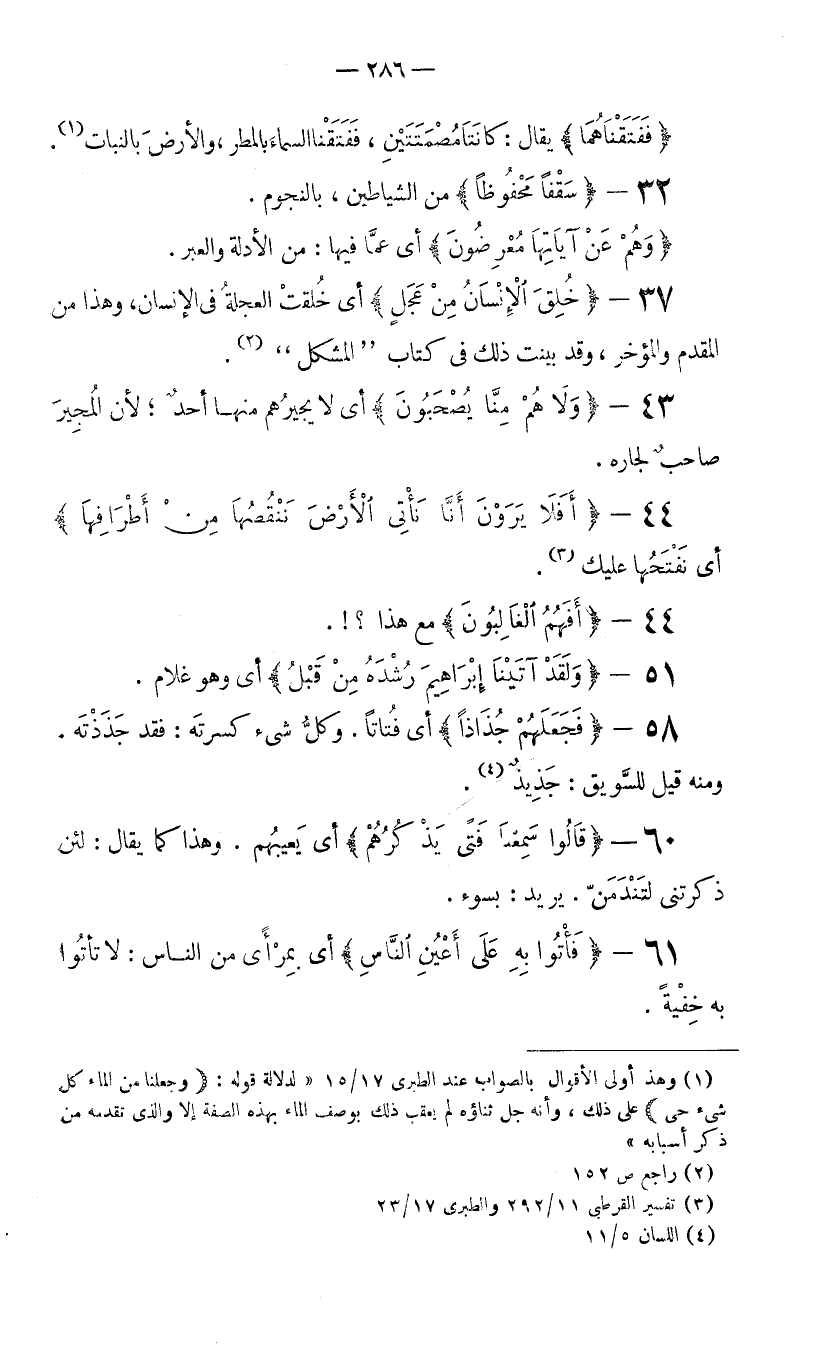 — ٢٨٦ —
﴿ فَفَتَقْنَاهُمَا ﴾ يقال : كانَتَا مُصْمَتَتَيْنِ ، فَفَتَقْنا السماءَ بالمطر ، والأرضَ بالنبات (١) .
٣٢ — ﴿ سَقْفاً مَحْفُوظاً ﴾ من الشياطين ، بالنجوم .
﴿ وَهُمْ عَنْ آيَاتِهَا مُعْرِضُونَ ﴾ أى عمَّا فيها : من الأدلة والعبر .
٣٧ — ﴿ خُلِقَ ٱلْإِنْسَانُ مِنْ عَجَلٍ ﴾ أى خُلقتْ العجلةُ فى الإنسان، وهذا من
المقدم والمؤخر ، وقد بينت ذلك فى كتاب ”المشكل“ (٢) .
٤٣ — ﴿ وَلَا هُمْ مِنَّا يُصْحَبُونَ ﴾ أى لا يجيرُهم منهـا أحدٌ ؛ لأن المُجِيرَ
صاحبٌ لجاره .
٤٤ — ﴿ أَفَلَا يَرَوْنَ أَنَّا نَأْتِى ٱلْأَرْضَ نَنْقُصُهَا مِنْ أَطْرَافِهَا ﴾
أى نَفْتَحُها عليك (٣) .
٤٤ — ﴿ أَفَهُمُ ٱلْغَالِبُونَ ﴾ مع هذا ؟! .
٥١ — ﴿ وَلَقَدْ آتَيْنَا إِبْرَاهِيمَ رُشْدَهُ مِنْ قَبْلُ ﴾ أى وهو غلام .
٥٨ — ﴿ فَجَعَلَهُمْ جُذَاذاً ﴾ أى فُتاتاً . وكلُّ شىء كسرتَه : فقد جَذَذْتَه .
ومنه قيل للسَّويق : جَذِيذٌ (٤) .
٦٠ — ﴿ قَالُوا سَمِعْنَا فَتًى يَذْكُرُهُمْ ﴾ أى يَعيبُهم . وهذا كما يقال : لئن
ذكرتنى لتَنْدَمَنّ . يريد : بسوء .
٦١ — ﴿ فَأْتُوا بِهِ عَلَى أَعْيُنِ ٱلنَّاسِ ﴾ أى بِمرْأًى من النـاس : لا تأتُوا
به خِفْيةً .
(١) وهذ أولى الأقوال بالصواب عند الطبرى ١٥/١٧ « لدلالة قوله : ﴿ وجعلنا من الماء كل
شىء حى ﴾ على ذلك ، وأنه جل ثناؤه لم يعقب ذلك بوصف الماء بهذه الصفة إلا والذى تقدمه من
ذكر أسبابه »
(٢) راجع ص ١٥٢
(٣) تفسير القرطبى ٢٩٢/١١ والطبرى ٢٣/١٧
(٤) اللسان ١١/٥